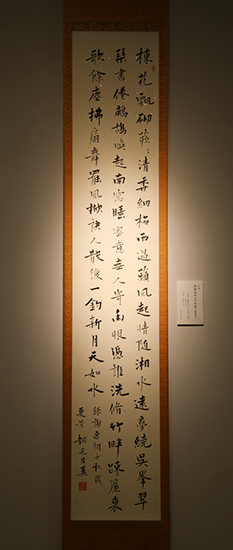 楝花飄砌蔌〻清香細梅雨過蘋風起情隨湘水遠夢繞吳峯翠
琴書倦鷓鴣喚起南窗睡密意無人寄幽恨憑誰洗脩竹畔疎簾裏
歌餘塵拂扇舞罷風掀袂人散後一鈎新月天如水
謝逸詞千秋歲
夏景